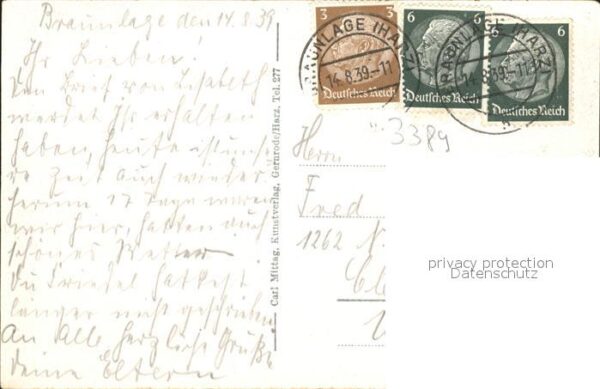 Braunlage den 14.8.39
Ihr Lieben!
Den Brief von Lisbeth
werdet Ihr erhalten
haben, heute ist unse
re Zeit auch wieder
herum 17 Tage waren
wir hier, hatten auch
schönes Wetter.
Du hattest
länger nicht geschrieben
An Alle herzliche Grüße
deine Eltern
Carl Mittag, Kunstverlag, Gernrode/Harz, Tel. 277
3 3
Deutsches Reich
6 6
Deutsches Reich
6 6
Deutsches Reich
BRAUNLAGE (HARZ)
14.8.39.-11
BRAUNLAGE (HARZ)
14.8.39.-11
3389
Herrn
Fred
1262 N.
Cle
privacy protection
Datenschutz